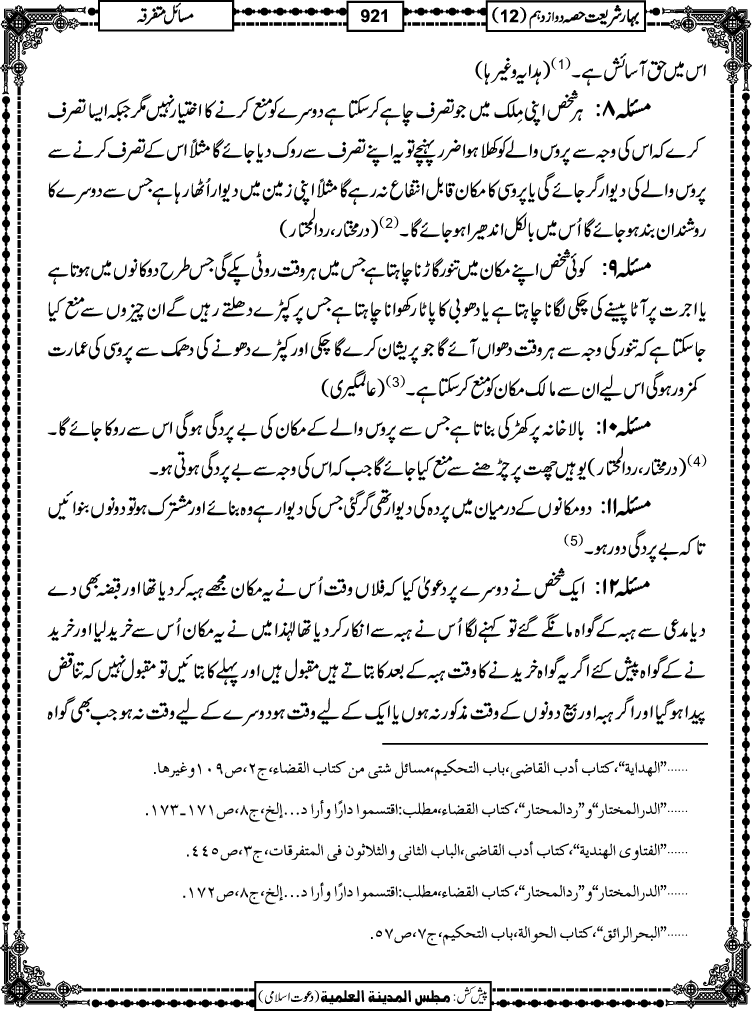 بہار شریعت حصہ دوازدہم (12)
921
مسائل متفرقہ
اس میں حق آسائش ہے۔(1) (ہدایہ وغیرہا)
مسئلہ ۸: ہر شخص اپنی مِلک میں جو تصرف چاہے کرسکتا ہے دوسرے کو منع کرنے کا اختیار نہیں مگر جبکہ ایسا تصرف
کرے کہ اس کی وجہ سے پروس والے کو کھلا ہوا ضرر پہنچے تو یہ اپنے تصرف سے روک دیا جائے گا مثلاً اس کے تصرف کرنے سے
پروس والے کی دیوار گر جائے گی یا پروسی کا مکان قابل انتفاع نہ رہے گا مثلاً اپنی زمین میں دیوار اُٹھا رہا ہے جس سے دوسرے کا
روشندان بند ہو جائے گا اُس میں بالکل اندھیرا ہو جائے گا۔(2) (درمختار، ردالمحتار)
مسئلہ ۹: کوئی شخص اپنے مکان میں تنور گاڑنا چاہتا ہے جس میں ہر وقت روٹی پکے گی جس طرح دوکانوں میں ہوتا ہے
یا اجرت پر آٹا پیسنے کی چکی لگانا چاہتا ہے یا دھوبی کا پاٹا رکھوانا چاہتا ہے جس پر کپڑے دھلتے رہیں گے ان چیزوں سے منع کیا
جاسکتا ہے کہ تنور کی وجہ سے ہر وقت دھواں آئے گا جو پریشان کرے گا چکی اور کپڑے دھونے کی دھمک سے پروسی کی عمارت
کمزور ہوگی اس لیے ان سے مالک مکان کو منع کرسکتا ہے۔(3) (عالمگیری)
مسئلہ ۱۰: بالا خانہ پر کھڑکی بناتا ہے جس سے پروس والے کے مکان کی بے پردگی ہوگی اس سے روکا جائے گا۔
(4) (درمختار، ردالمحتار) یوہیں چھت پر چڑھنے سے منع کیا جائے گا جب کہ اس کی وجہ سے بے پردگی ہوتی ہو۔
مسئلہ ۱۱: دو مکانوں کے درمیان میں پردہ کی دیوار تھی گر گئی جس کی دیوار ہے وہ بنائے اور مشترک ہو تو دونوں بنوائیں
تاکہ بے پردگی دور ہو۔(5)
مسئلہ ۱۲: ایک شخص نے دوسرے پر دعویٰ کیا کہ فلاں وقت اُس نے یہ مکان مجھے ہبہ کر دیا تھا اور قبضہ بھی دے
دیا مدعی سے ہبہ کے گواہ مانگے گئے تو کہنے لگا اُس نے ہبہ سے انکار کر دیا تھا لہٰذا میں نے یہ مکان اُس سے خرید لیا اور خرید
نے کے گواہ پیش کئے اگر یہ گواہ خریدنے کا وقت ہبہ کے بعد کا بتاتے ہیں مقبول ہیں اور پہلے کا بتائیں تو مقبول نہیں کہ تناقض
پیدا ہوگیا اور اگر ہبہ اور بیع دونوں کے وقت مذکور نہ ہوں یا ایک کے لیے وقت ہو دوسرے کے لیے وقت نہ ہو جب بھی گواہ
......"الهداية"، كتاب أدب القاضى، باب التحكيم، مسائل شتى من كتاب القضاء، ج٢، ص١٠٩ وغيرها.
......"الدرالمختار" و"ردالمحتار"، كتاب القضاء، مطلب: اقتسموا دارًا وأراد...إلخ، ج٨، ص١٧١۔١٧٣.
......"الفتاوى الهندية"، كتاب أدب القاضى، الباب الثانى والثلاثون فى المتفرقات، ج٣، ص٤٤٥.
......"الدرالمختار" و"ردالمحتار"، كتاب القضاء، مطلب: اقتسموا دارًا وأراد...إلخ، ج٨، ص١٧٢.
......"البحرالرائق"، كتاب الحوالة، باب التحكيم، ج٧، ص٥٧.
پیش کش: مجلس المدينة العلمية (دعوت اسلامی)